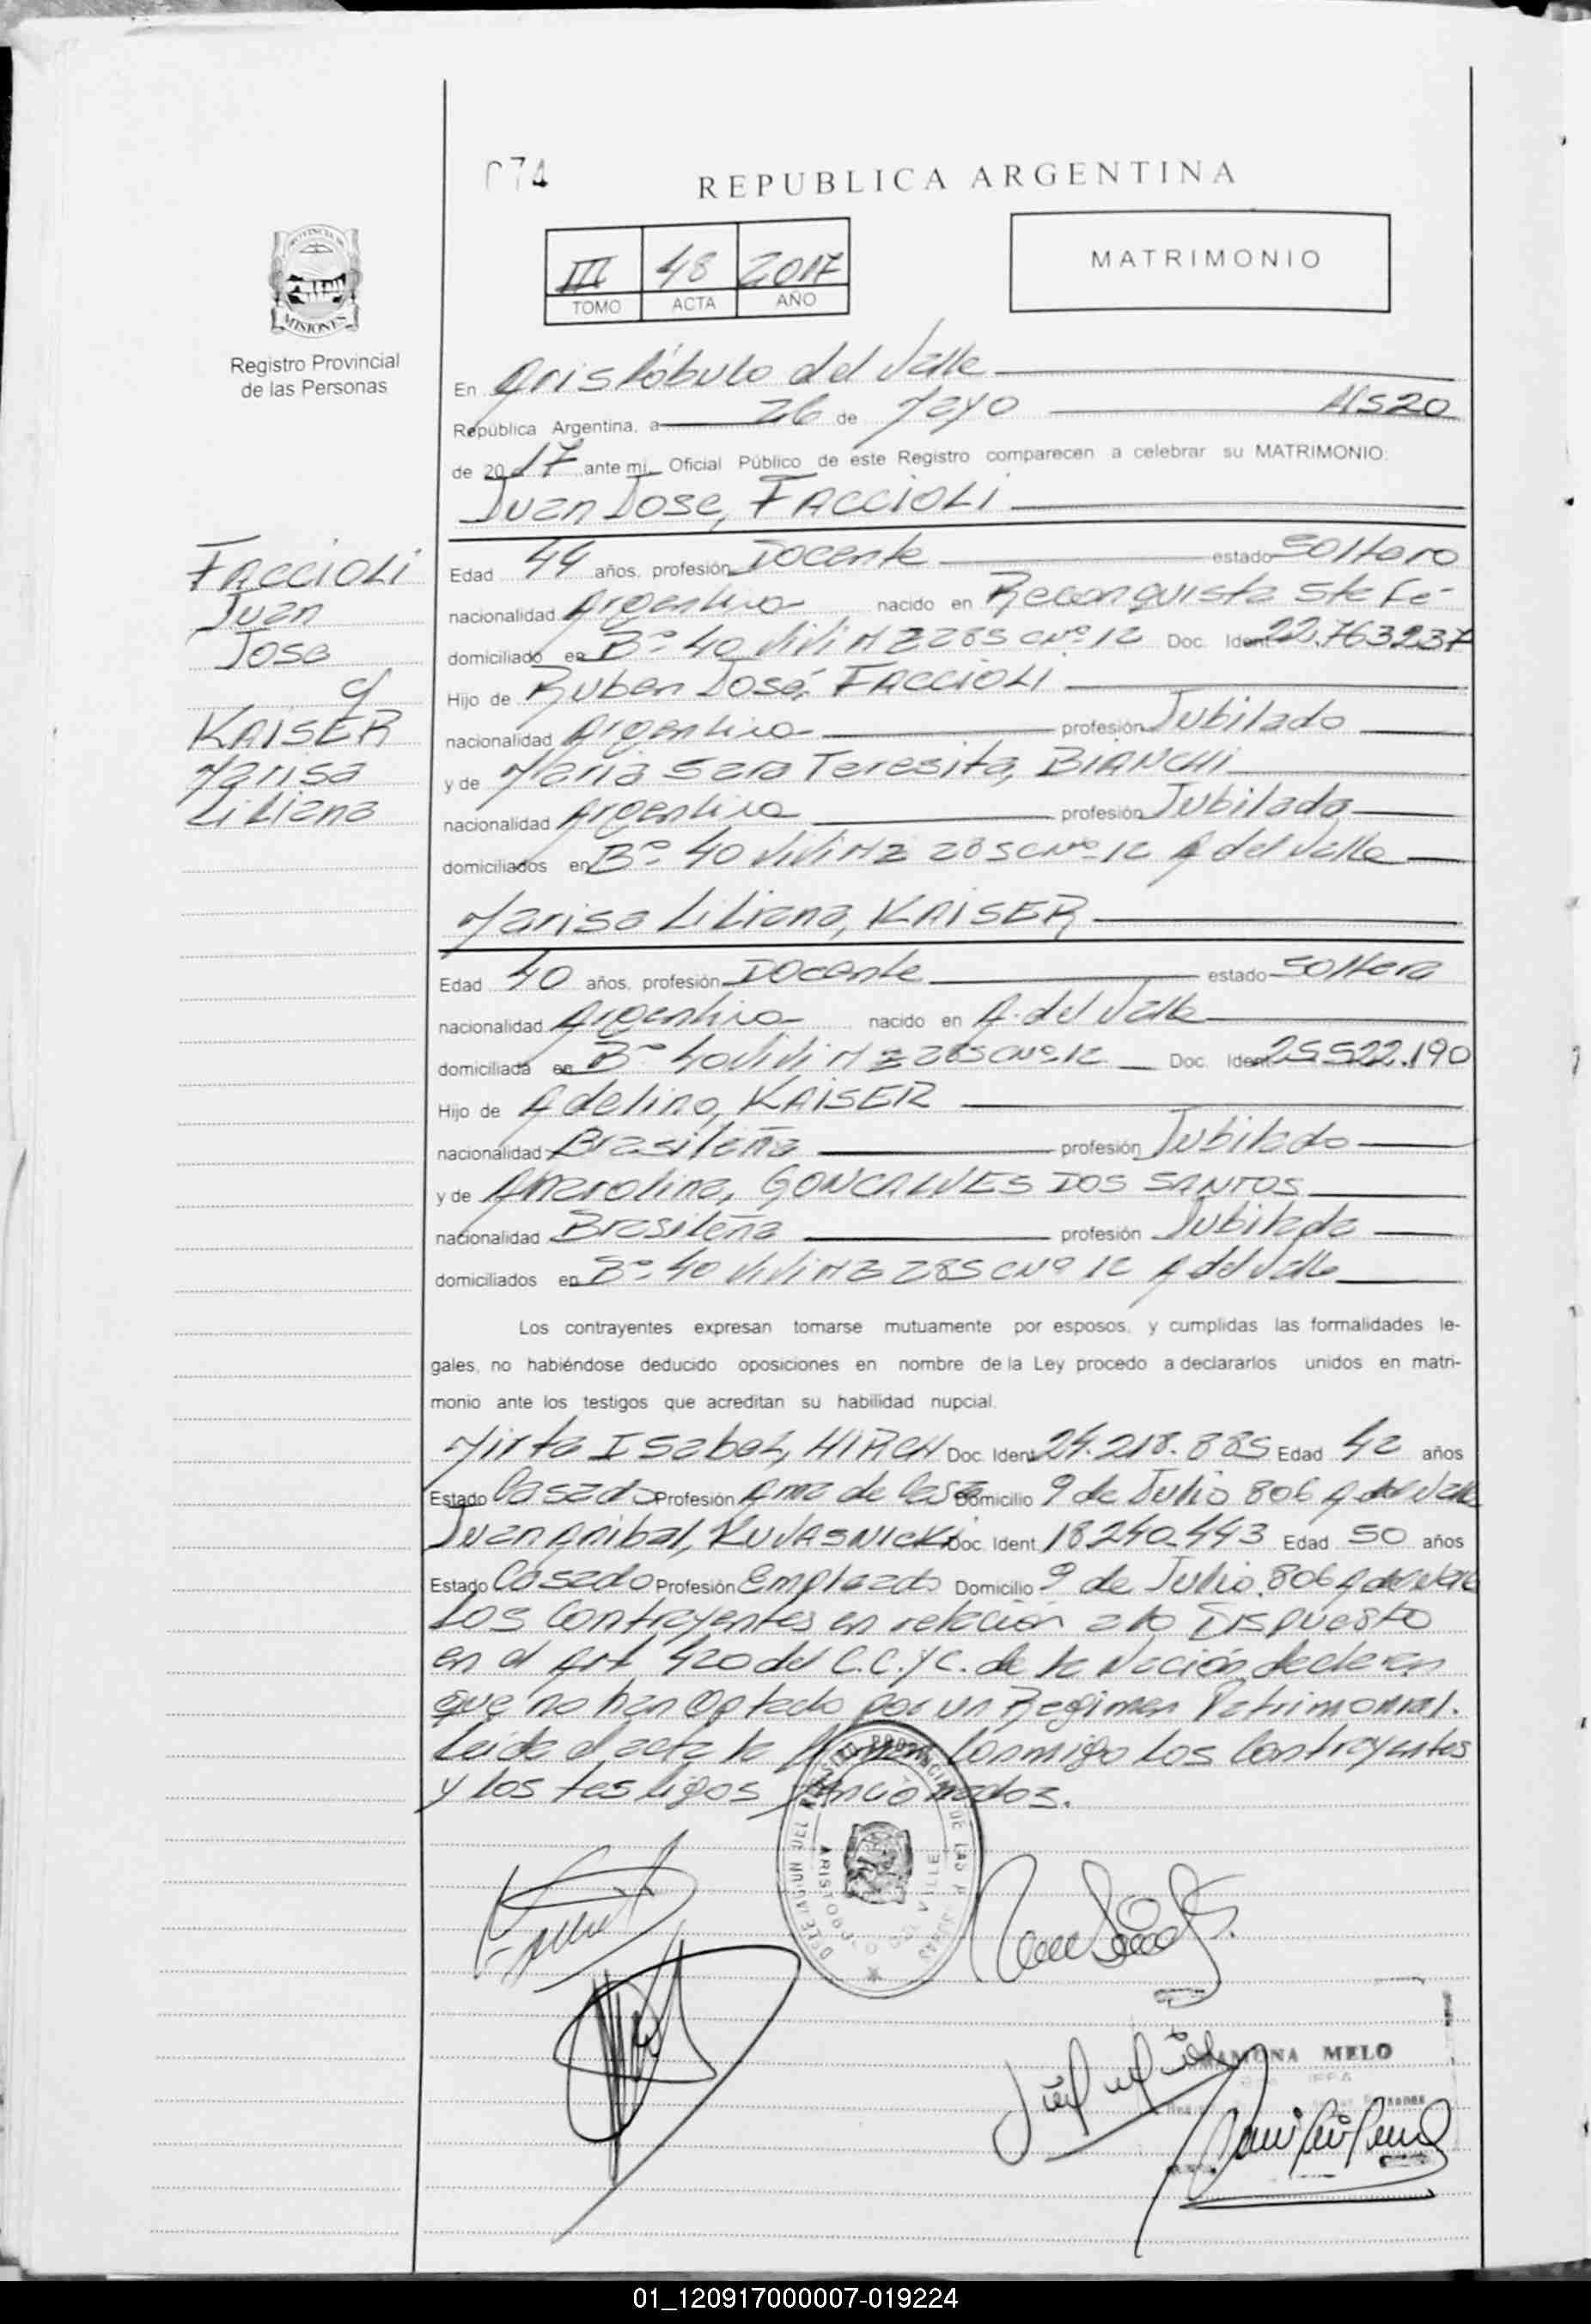 074
REPUBLICA ARGENTINA
III 48 2017
TOMO ACTA AÑO
MATRIMONIO
PROVINCIA DE
MISIONES
Registro Provincial
de las Personas
En Aristóbulo del Valle
República Argentina, a 26 de Mayo Hs 20
de 20 17 ante mi, Oficial Público de este Registro comparecen a celebrar su MATRIMONIO:
Juan Jose, FACCIOLI
FACCIOLI
Juan
Jose
y
KAISER
Marisa
Liliana
Edad 44 años, profesión Docente estado Soltero
nacionalidad Argentina nacido en Reconquista Sta Fé
domiciliado en Bº 40 Vivi Mz 285 C Nº 12 Doc. Ident 22.763.237
Hijo de Ruben José, FACCIOLI
nacionalidad Argentina profesión Jubilado
y de Maria Sara Teresita, BIANCHI
nacionalidad Argentina profesión Jubilada
domiciliados en Bº 40 Vivi Mz 285 C Nº 12 A del Valle
Marisa Liliana, KAISER
Edad 40 años, profesión Docente estado Soltera
nacionalidad Argentina nacido en A. del Valle
domiciliada en Bº 40 Vivi Mz 285 C Nº 12 Doc. Ident 25.522.190
Hijo de Adelino, KAISER
nacionalidad Brasileña profesión Jubilado
y de GONCALVES DOS SANTOS
nacionalidad Brasileña profesión Jubilada
domiciliados en Bº 40 Vivi Mz 285 C Nº 12 A del Valle
Los contrayentes expresan tomarse mutuamente por esposos, y cumplidas las formalidades le-
gales, no habiéndose deducido oposiciones en nombre de la Ley procedo a declararlos unidos en matri-
monio ante los testigos que acreditan su habilidad nupcial.
Mirta Isabel, HIRCH Doc. Ident 24.218.885 Edad 42 años
Estado Casada Profesión Ama de Casa Domicilio 9 de Julio 806 A del Valle
Juan Anibal, KUJASNICKI Doc. Ident. 18.240.443 Edad 50 años
Estado Casado Profesión Empleado Domicilio 9 de Julio 806 A del Valle
Los Contrayentes en relación a lo Dispuesto
en el Art 420 del C.C.y C. de la Nación declaran
que no han Optado por un Regimen Patrimonial.
Leida el acta la firman Conmigo Los Contrayentes
y los testigos mencionados.
RAMONA MELO
01_120917000007-019224